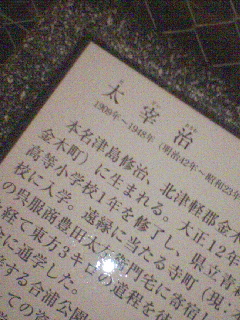 太宰治
1909年〜1948年（明治42年〜昭和23年
本名津島修治、北津軽郡金木
金木町）に生まれる。大正12年
高等小学校1年を修了し、県立青
校に入学。遠縁に当たる寺町（現
の呉服商豊田太左衛門宅に寄宿し
経て東方3キロの道程を徒
に通学した。
する合浦公園
ての資